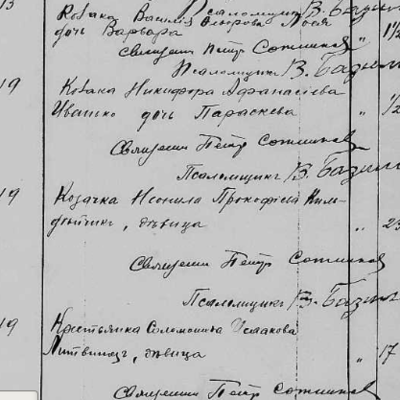 13 Псаломщикъ В. Базил
Козака Василія Лося
дочь Варвара " 1½
Священни Петр Сотников
Псаломщикъ В. Базил
19 Козака Никифора Афанасіева
Ивашко дочь Параскева " ½
Священни Петр Сотников
Псаломщикъ В. Базил
19 Козачка Неонила Прокофіева
дѣвица " 23
Священни Петр Сотников
Псаломщикъ В. Базил
19 Крестьянка Соломонида Исакова
Литвинецъ, дѣвица " 17
Священни Петр Сотников